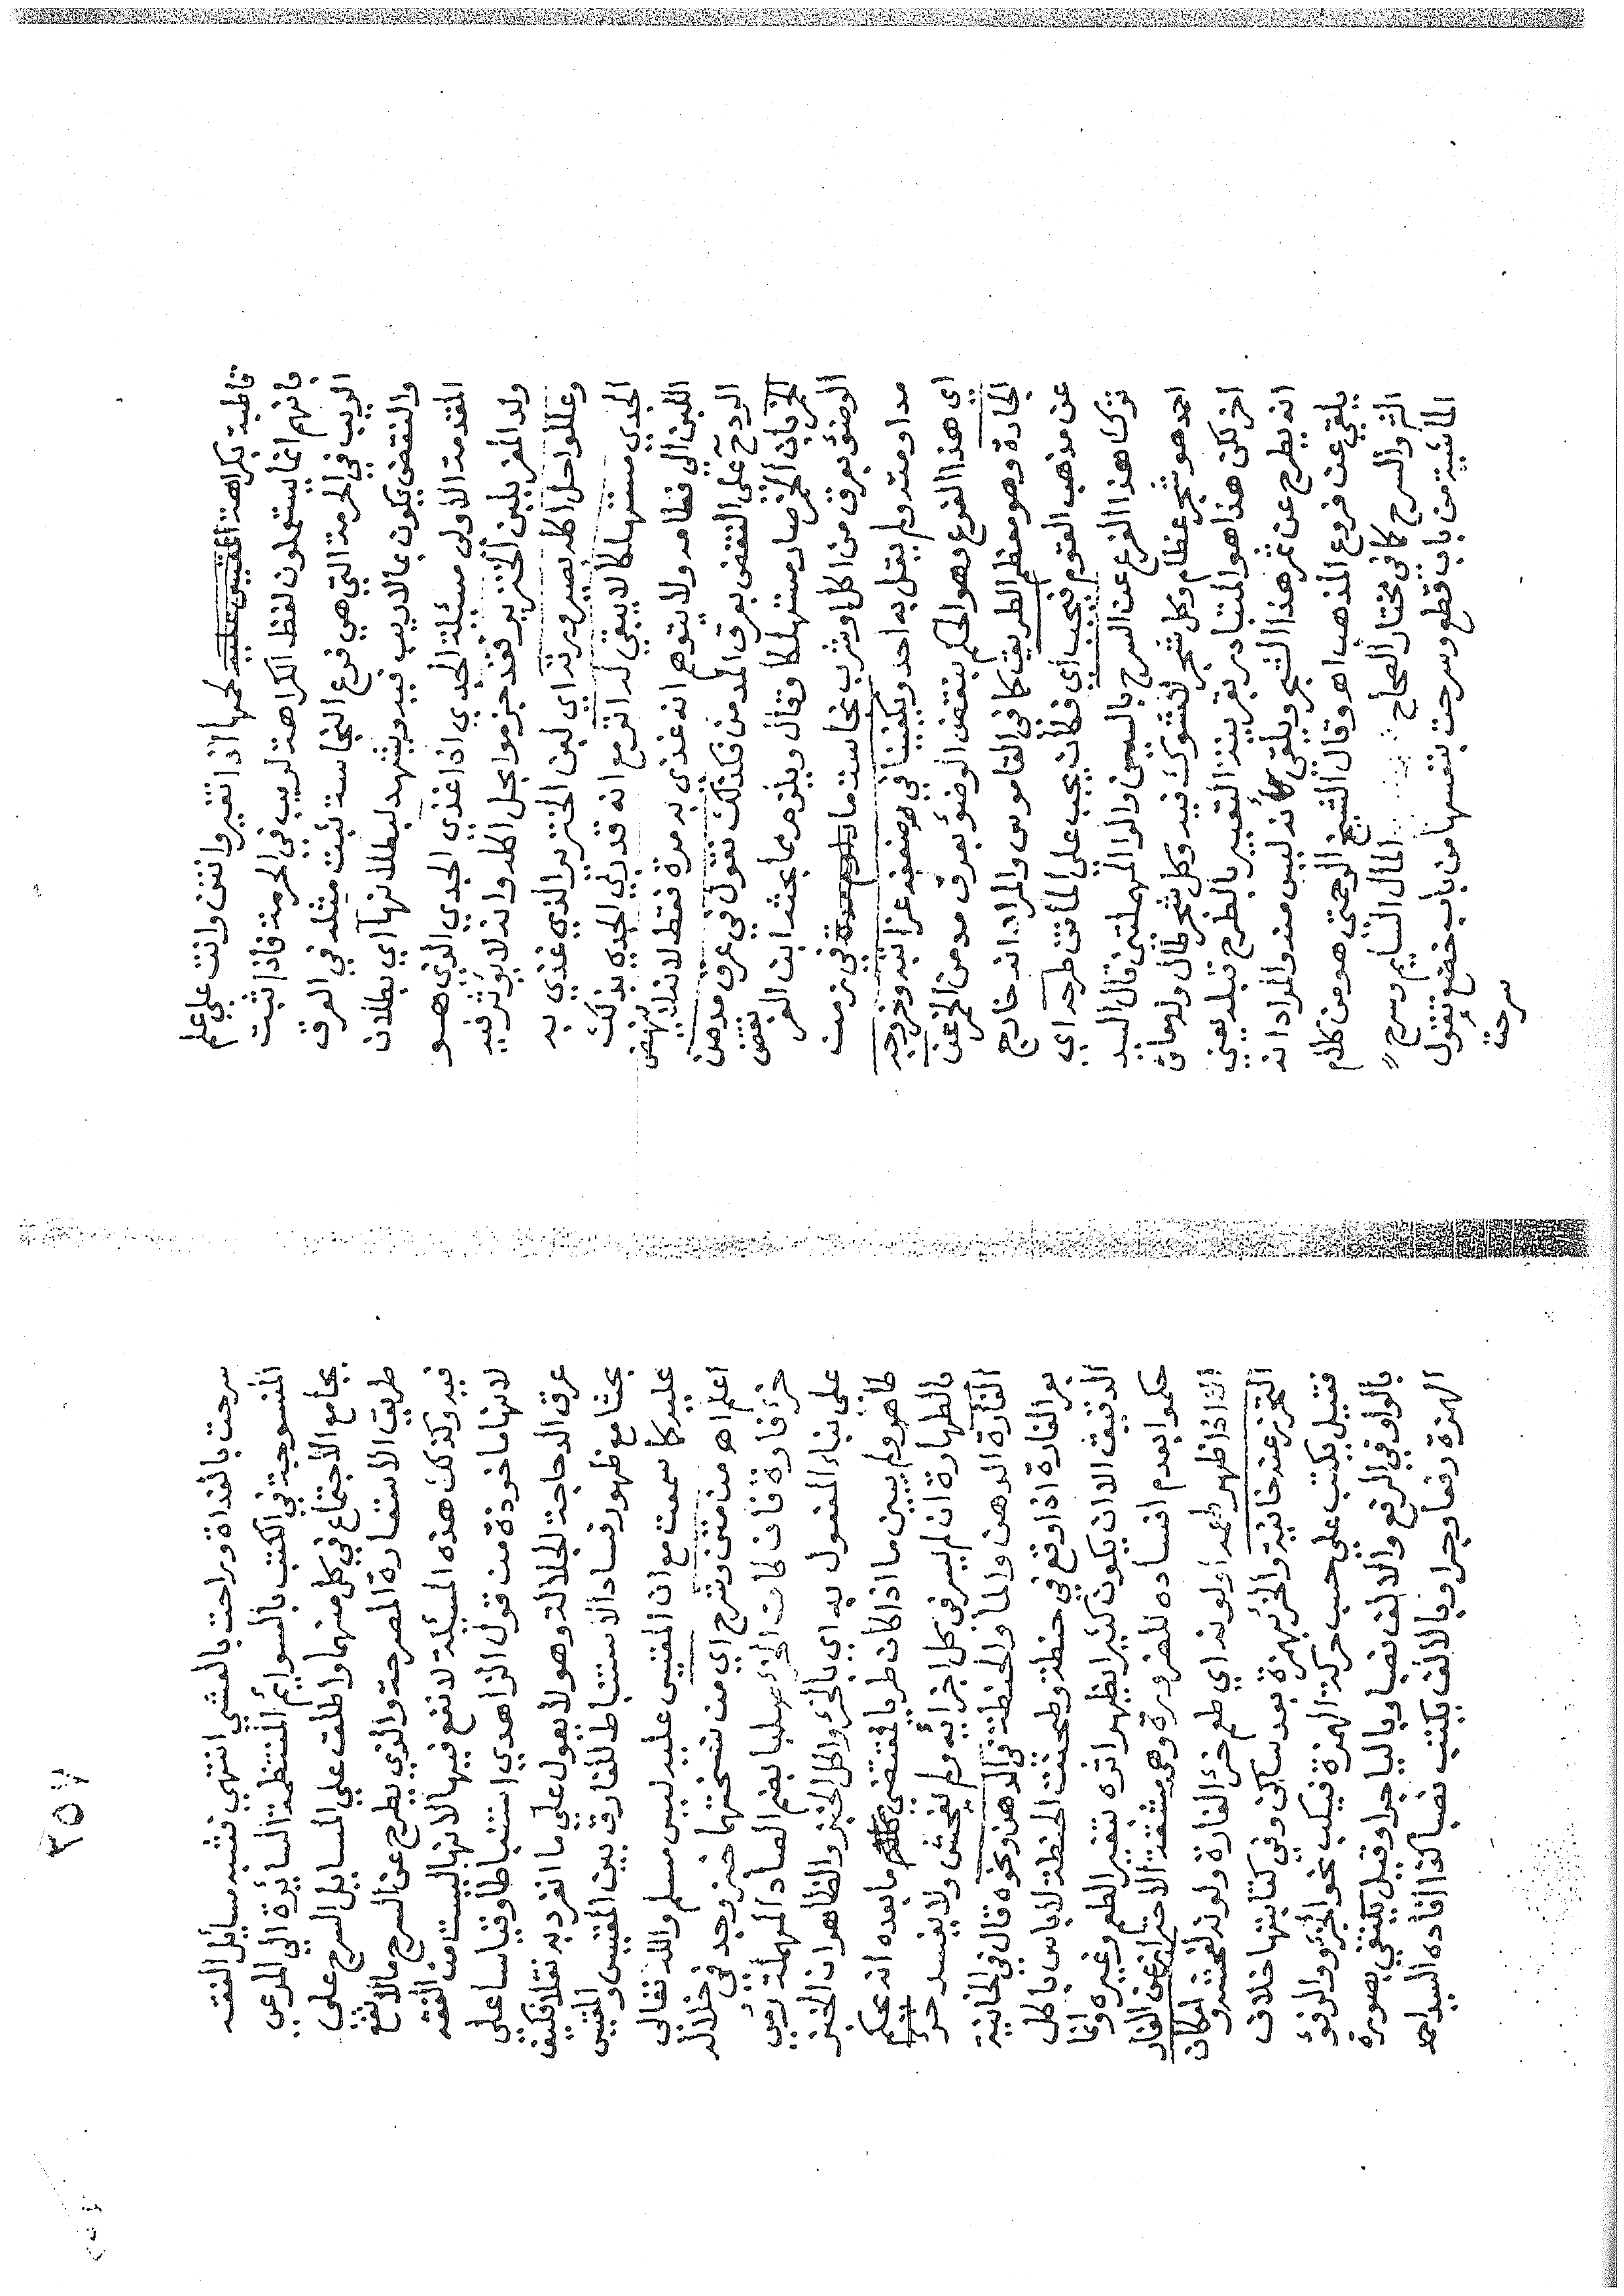 قاطبة بكراهة المقيس عليه لحمها اذا تغير وانتن وانت علي علم
فانهم انما يستعملون لفظ الكراهة لريب في الحرمة فاذا ثبت
الريب في الحرمة التي هي فرع النجاسة ثبت مثله في العرق
والنقض يكون بما لا ريب فيه ويشهد لبطلانها اي بطلان
المقدمة الاولى مسئلة الجدي اذا غذي الجدي الذي هو
ولد المعز بلبن الخنزير فقد جزموا بحل اكله وانه لا يؤثر فيه
وعللوا حل اكله بصيرورته اي لبن الخنزير الذي غذي به
الجدي مستهلكا لا يبقي له اثر مع انه قد ربي الجدي بذلك
اللبن الي فطامه ولا يتوهم انه غذي به مرة فقط لانه لا ينهض
الرد ح على النقض بعرق المدمن فكذلك نقول في عرق مدمن
الخمر بان الخمر صار مستهلكا وقال ويلزم مما بحثه ابن العز نقض
الوضؤ بعرق من اكل او شرب نجاسة ما في زمن
مداومته ولم يقل به احد ويكفينا في ضعفه غرابته وخروجه
اي هذا الفرع وهو الحكم بنقض الوضؤ بعرق مدمن الخمر عن
الجادة وهو معظم الطريق كما في القاموس والمراد انه خارج
عن مذهب القوم فيجب اي فكان يجب علي الماتن طرحه اي
ترك هذا الفرع عن السرح بالسين والرا المهملتين قال السيد
احمد هو شجر عظام وكل شجر لا شوك فيه وكل شجر طال وله معان
اخر لكن هذا هو المتبادر بقرينة التعبير بالطرح قبله يعني
انه يطرح عن ثمر هذا الشجر ويلقي كأنه ليس منه والمراد انه
يلقي عن فروع المذهب اهـ وقال الشيخ الرحمتي هو من كلام
الثر والسرح كما في مختار الصحاح المال السائم وسرح
الماشية من باب قطع وسرحت بنفسها من باب خضع تقول
سرحت
٢٥٧
سرحت بالغداة وراحت بالعشي انتهي فشبه مسايل الفقه
المنسوجة في الكتب بالسوايم المنتظمة السايرة الي المرعى
بجامع الاجتماع في كل منهما واطلقت علي المسايل السرح على
طريق الاستعارة المصرحة والذي يطرح عن السرح ما لا نفع
فيه وكذلك هذه المسئلة لا نفع فيها لانها ليست من الفقه
لانها ماخوذة من قول الزاهدي استنباطا وقياسا على
عرق الدجاجة الجلالة وهو لا يعول علي ما انفرد به نقلا فكيف
بحثا مع ظهور فساد الاستنباط للفارق بين المقيس والمقيس
عليه كما سمعت مع ان المقيس عليه ليس مسلم والله تعالى
اعلم اهـ من متن وشرح اي من نسختهما خبز وجد في خلاله
خرؤ فارة فان كان الخرؤ صلبا بضم الصاد المهملة رمي
على بناء المفعول به اي بالخرؤ واكل الخبز والظاهر ان الخبز
طاهر ولم يبين ما اذا كان طريا فمقتضي ما بعده انه يحكم
بالطهارة ان لم يسر في كل اجزايه ولم يفحش ولا يفسد خرؤ
الفارة الدهن والماء والحنطة في الدهن ونحوه قال في الخانية
بعر الفارة اذا وقع في حنطة وطحنت الحنطة لا باس باكل
الدقيق الا ان يكون كثيرا يظهر اثره بتغير الطعم وغيره وانما
حكموا بعدم افساده للضرورة وهي مشقة الاحتراز عن الفار
الا اذا ظهر طعمه او لونه اي طعم خرؤ الفارة ولونه لفحشه وامكان
التحرز عنه خانية والخرؤ بهمزة بعد ساكن وفي كتابتها خلاف
فقيل يكتب علي حسب حركة الهمزة فيكتب نحو الخرؤ والرفؤ
بالواو في الرفع والالف نصبا وبالياء جرا وقيل يكتفي بصورة
الهمزة رفعا وجرا وبالالف يكتب نصبا كذا افاده السيد احمد